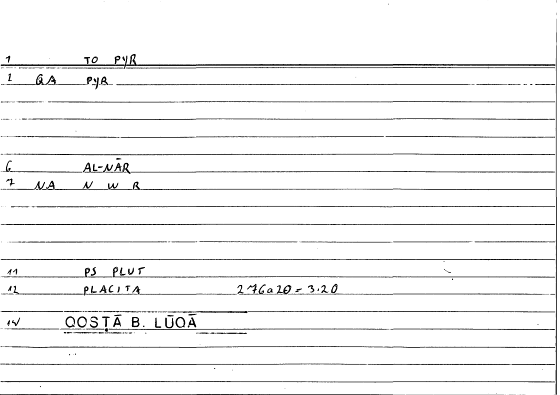 1 TO PYR
2 QA PYR
6 AL-NĀR
7 NA N W R
11 PS PLUT
12 PLACITA 276a20 = 3.20
14 QOSṬĀ B. LŪQĀ